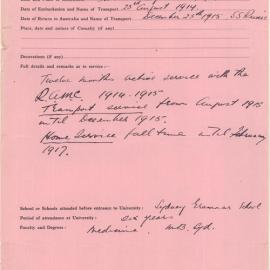 Date of Embarkation and Name of Transport 25th August 1914.
Date of Return to Australia and Name of Transport December 25th 1915 SS
Place, date and nature of Casualty (if any)
Decorations (if any)
Full details and remarks as to service:
Twelve months active service with the
R.A.M.C. 1914-1915
Transport service from August 1915
until December 1915.
Home Service full time until February
1917.
School or Schools attended before entrance to University: Sydney Grammar School
Period of attendance at University: years
Faculty and Degrees: Medicine. M.B. Syd.